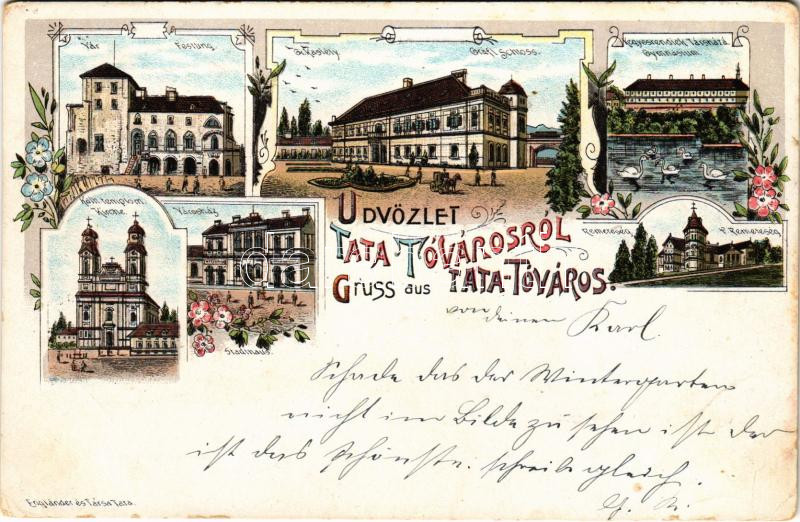 Vár Festung.
A Kastély Gräfl. Schloss.
Kegyesrendiek Társháza
Gymnasium.
Kath. templom
Kirche.
Városház
Stadthaus.
Remeteség P. Remeteség
ÜDVÖZLET
TATA TÓVÁROSRÓL
GRUSS aus TATA-TÓVÁROS.
von deinen Karl.
Schade das der Wintergarten
nicht im Bilde zu sehen ist der
ist das schönste. schreib gleich.
Engländer és Társa Tata.